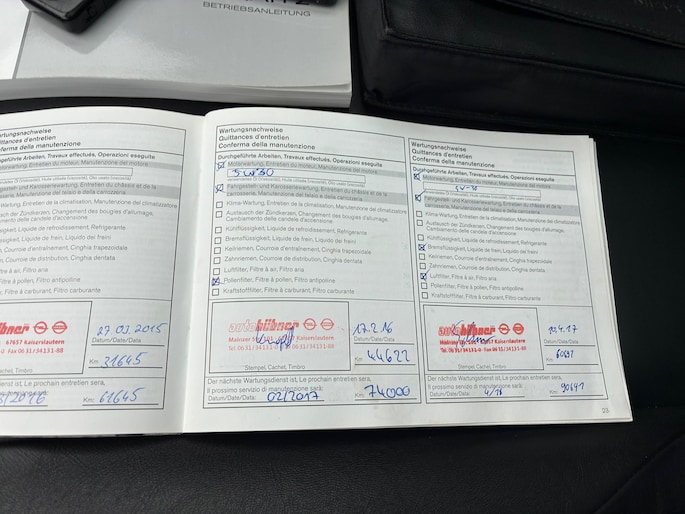 BETRIEBSANLEITUNG
Wartungsnachweise
Quittances d'entretien
Conferma della manutenzione
geführte Arbeiten, Travaux effectués, Operazioni eseguite
Klima-Wartung, Entretien de la climatisation, Manutenzione del climatizzatore
Austausch der Zündkerzen, Changement des bougies d'allumage,
Cambiamento delle candele d'accensione
Kühlflüssigkeit, Liquide de refroidissement, Refrigerante
Bremsflüssigkeit, Liquide de frein, Liquido dei freni
Keilriemen, Courroie d'entraînement, Cinghia trapezoidale
Zahnriemen, Courroie de distribution, Cinghia dentata
Luftfilter, Filtre à air, Filtro aria
Pollenfilter, Filtre à pollen, Filtro antipolline
Kraftstofffilter, Filtre à carburant, Filtro carburante
hübner
67657 Kaiserslautern
Fax 06 31/34131-88
27.03.2015
Km: 31645
Stempel, Cachet, Timbro
Datum/Date/Data:
Km: 61645
Wartungsnachweise
Quittances d'entretien
Conferma della manutenzione
Durchgeführte Arbeiten, Travaux effectués, Operazioni eseguite
Motorwartung, Entretien du moteur, Manutenzione del motore
5W30
Fahrgestell- und Karosseriewartung, Entretien du châssis et de la
carrosserie, Manutenzione del telaio e della carrozzeria
Klima-Wartung, Entretien de la climatisation, Manutenzione del climatizzatore
Austausch der Zündkerzen, Changement des bougies d'allumage,
Cambiamento delle candele d'accensione
Kühlflüssigkeit, Liquide de refroidissement, Refrigerante
Bremsflüssigkeit, Liquide de frein, Liquido dei freni
Keilriemen, Courroie d'entraînement, Cinghia trapezoidale
Zahnriemen, Courroie de distribution, Cinghia dentata
Luftfilter, Filtre à air, Filtro aria
Pollenfilter, Filtre à pollen, Filtro antipolline
Kraftstofffilter, Filtre à carburant, Filtro carburante
autohübner
Mainzer Kaiserslautern
Tel. 06 31/34131-0 34131-88
17.2.16
Datum/Date/Data:
Km: 44622
Stempel, Cachet, Timbro
Der nächste Wartungsdienst ist, Le prochain entretien sera,
Il prossimo servizio di manutenzione sarà:
Datum/Date/Data: 02/2017 Km: 74000
Wartungsnachweise
Quittances d'entretien
Conferma della manutenzione
Durchgeführte Arbeiten, Travaux effectués, Operazioni eseguite
Motorwartung, Entretien du moteur, Manutenzione del motore
Fahrgestell- und Karosseriewartung, Entretien du châssis et de la
carrosserie, Manutenzione del telaio e della carrozzeria
Klima-Wartung, Entretien de la climatisation, Manutenzione del climatizzatore
Austausch der Zündkerzen, Changement des bougies d'allumage,
Cambiamento delle candele d'accensione
Kühlflüssigkeit, Liquide de refroidissement, Refrigerante
Bremsflüssigkeit, Liquide de frein, Liquido dei freni
Keilriemen, Courroie d'entraînement, Cinghia trapezoidale
Zahnriemen, Courroie de distribution, Cinghia dentata
Luftfilter, Filtre à air, Filtro aria
Pollenfilter, Filtre à pollen, Filtro antipolline
Kraftstofffilter, Filtre à carburant, Filtro carburante
autohübner
Mainzer Kaiserslautern
Tel. 06 31/34131-0 34131-88
4.17
Datum/Date/Data:
Km:
Stempel, Cachet, Timbro
Der nächste Wartungsdienst ist, Le prochain entretien sera,
Il prossimo servizio di manutenzione sarà:
Datum/Date/Data: 4/18 Km: 90691
23